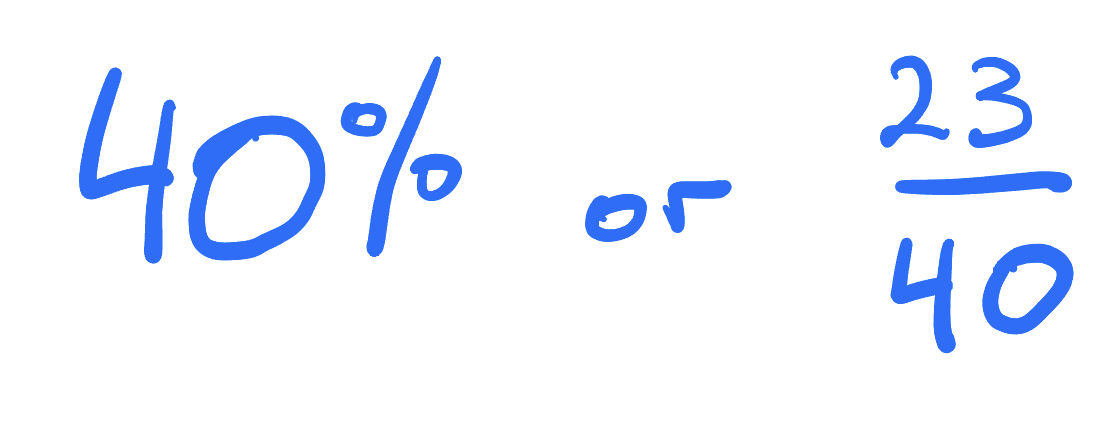 40% or 23/40